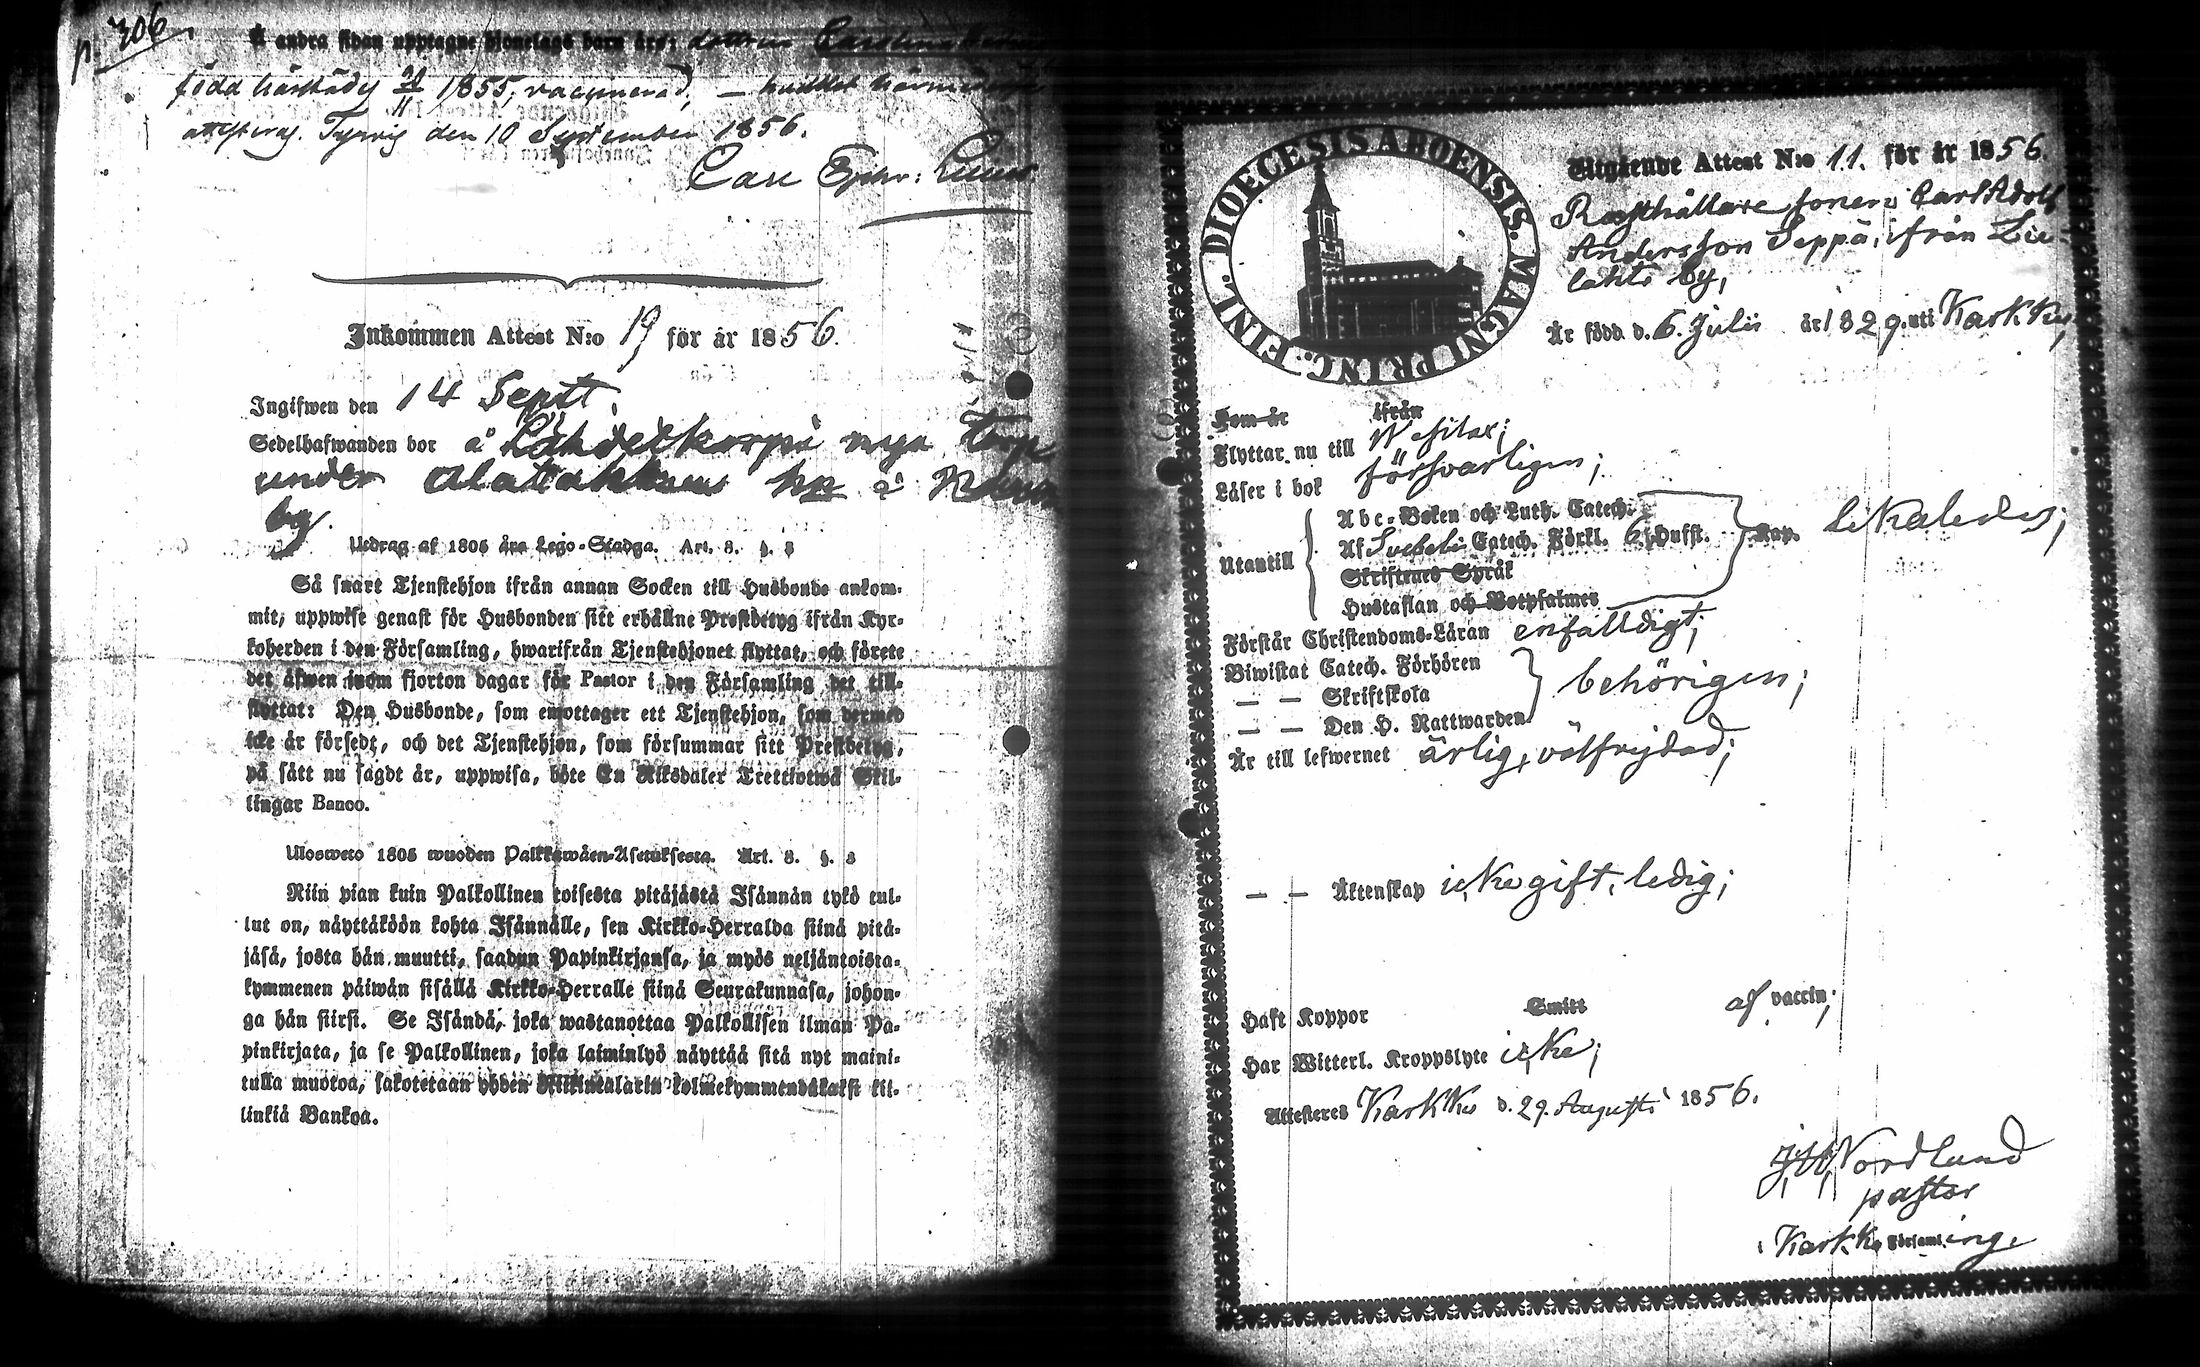 p. 706.
Å andra sidan upptagne hjonelags barn äro: dottren Carolina
född härstädes 24/11 1855, vaccinerad, —
attesteras. Tyrvis den 10 September 1856.
Carl Ephr:
Inkommen Attest N:o 19 för år 1856.
Ingifwen den 14 Sept.
Sedelhafwanden bor å Lähdeskorpi nya Torp
under Alatakkus hn å
by.
Utdrag af 1805 års Lego-Stadga. Art. 3. §. 3
Så snart Tjenstehjon ifrån annan Socken till Husbonde ankom-
mit, uppwise genast för Husbonden sitt erhållne Prestbetyg ifrån Kyr-
koherden i den Församling, hwarifrån Tjenstehjonet flyttat, och förete
det äfwen inom fjorton dagar för Pastor i den Församling det till-
flyttat: Den Husbonde, som emottager ett Tjenstehjon, som dermed
icke är försedt, och det Tjenstehjon, som försummar sitt Prestbetyg,
på sätt nu sagdt är, uppwisa, böte En Riksdaler Trettiotwå Skil-
lingar Banco.
Ulosweto 1805 wuoden Palkkawäen-Asetuksesta. Art. 3. §. 3
Niin pian kuin Palkollinen toisesta pitäjästä Isännän tykö tul-
lut on, näyttäköön kohta Isännälle, sen Kirkko-Herralda siinä pitä-
jäsä, josta hän muutti, saadun Papinkirjansa, ja myös neljäntoista-
kymmenen päiwän sisällä Kirkko-Herralle siinä Seurakunnasa, johon-
ga hän siirsi. Se Isändä, joka wastanottaa Palkollisen ilman Pa-
pinkirjata, ja se Palkollinen, joka laiminlyö näyttää sitä nyt maini-
tulla muotoa, sakotetaan yhden Riikintalarin kolmekymmendäkaksi kil-
linkiä Bankoa.
DIOECESIS ABOENSIS. MAGNI PRINC. FINL.
Utgående Attest N:o 11. för år 1856.
Rusthållare sonen Carl Adolf
Andersson Seppä, ifrån Lie-
lahti by,
Är född d. 6. Julii år 1829. uti Karkku,
Kom år ifrån
Flyttar nu till Wesilax;
Läser i bok försvarligen;
Abc-Boken och Luth. Catech.
Utantill Af Svebelii Catech. Förkl. 6. Hufst. Kap. likaledes;
Skriftenes Språk
Hustaflan och Botpsalmer
Förstår Christendoms-Läran enfaldigt;
Biwistat Catech. Förhören
— — Skriftskola behörigen;
— — Den H. Nattwarden
Är till lefwernet ärlig, välfrejdad;
— — Äktenskap icke gift, ledig;
Haft Koppor Smitt af vaccin;
Har Witterl. Kroppslyte icke;
Attesteres Karkku d. 29. Augusti 1856.
Nordlund
pastor
i Karkku Församling.